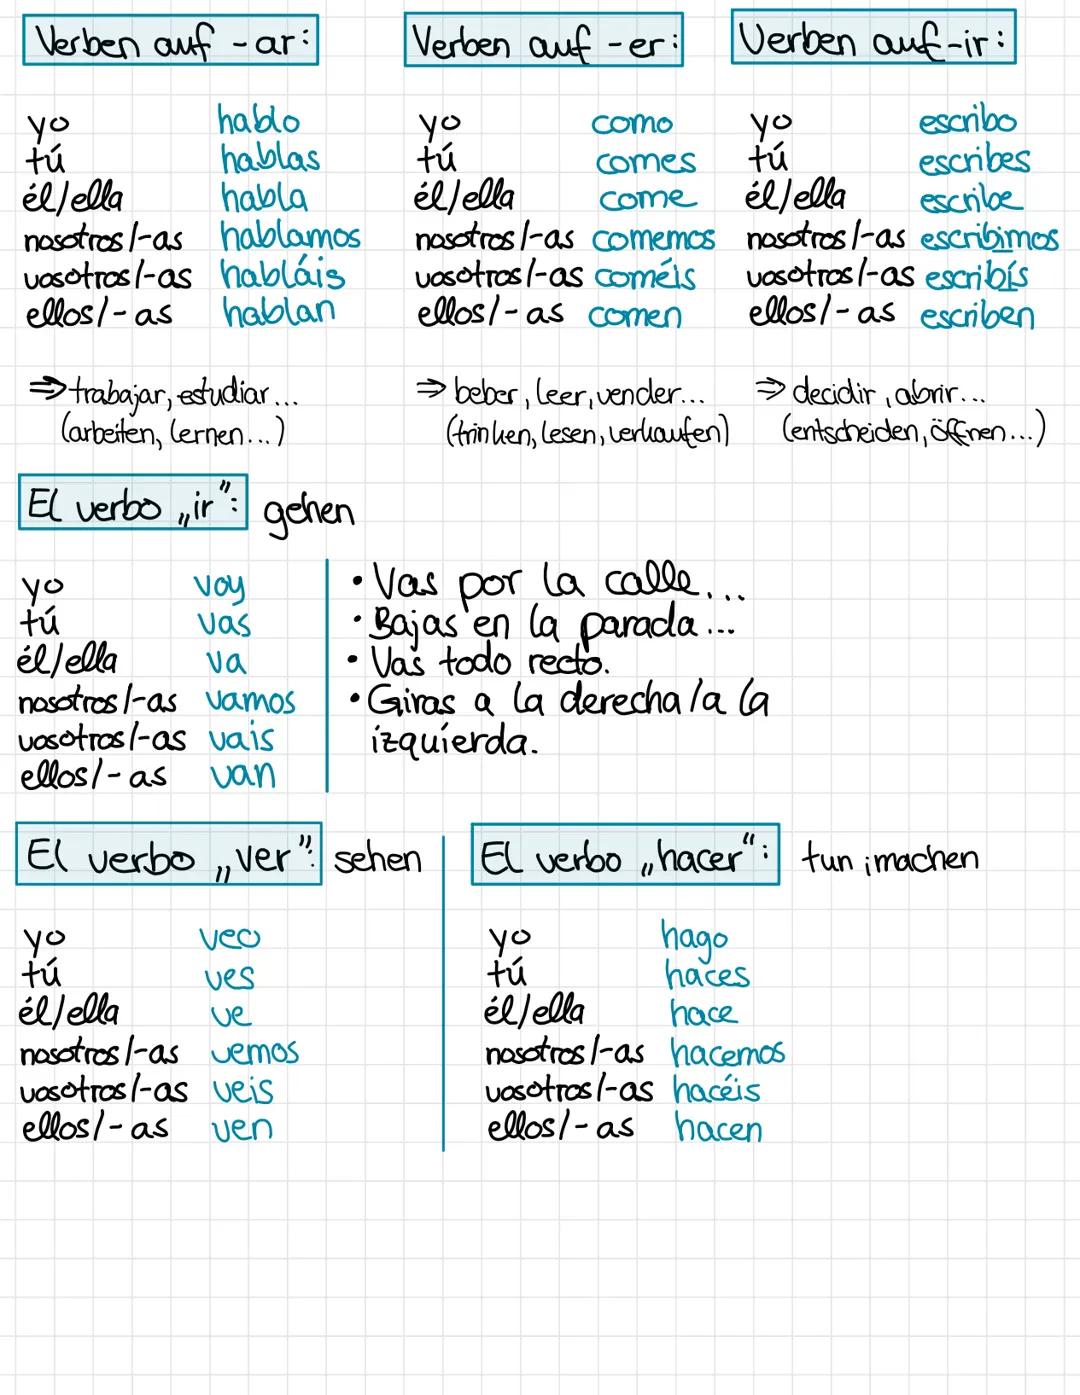 Verben auf -ar:
yo hablo
tú hablas
él/ella habla
nosotros/-as hablamos
vosotros/-as habláis
ellos/-as hablan
⇒ trabajar, estudiar...
(arbeiten, lernen...)
Verben auf -er:
yo como
tú comes
él/ella come
nosotros/-as comemos
vosotros/-as coméis
ellos/-as comen
⇒ beber, leer, vender...
(trinken, lesen, verkaufen)
Verben auf -ir:
yo escribo
tú escribes
él/ella escribe
nosotros/-as escribimos
vosotros/-as escribís
ellos/-as escriben
⇒ decidir, abrir...
(entscheiden, öffnen...)
El verbo „ir": gehen
yo voy
tú vas
él/ella va
nosotros/-as vamos
vosotros/-as vais
ellos/-as van
• Vas por la calle...
• Bajas en la parada...
• Vas todo recto.
• Giras a la derecha/a la
izquíerda.
El verbo „ver": sehen
yo veo
tú ves
él/ella ve
nosotros/-as vemos
vosotros/-as veis
ellos/-as ven
El verbo „hacer": tun ; machen
yo hago
tú haces
él/ella hace
nosotros/-as hacemos
vosotros/-as hacéis
ellos/-as hacen